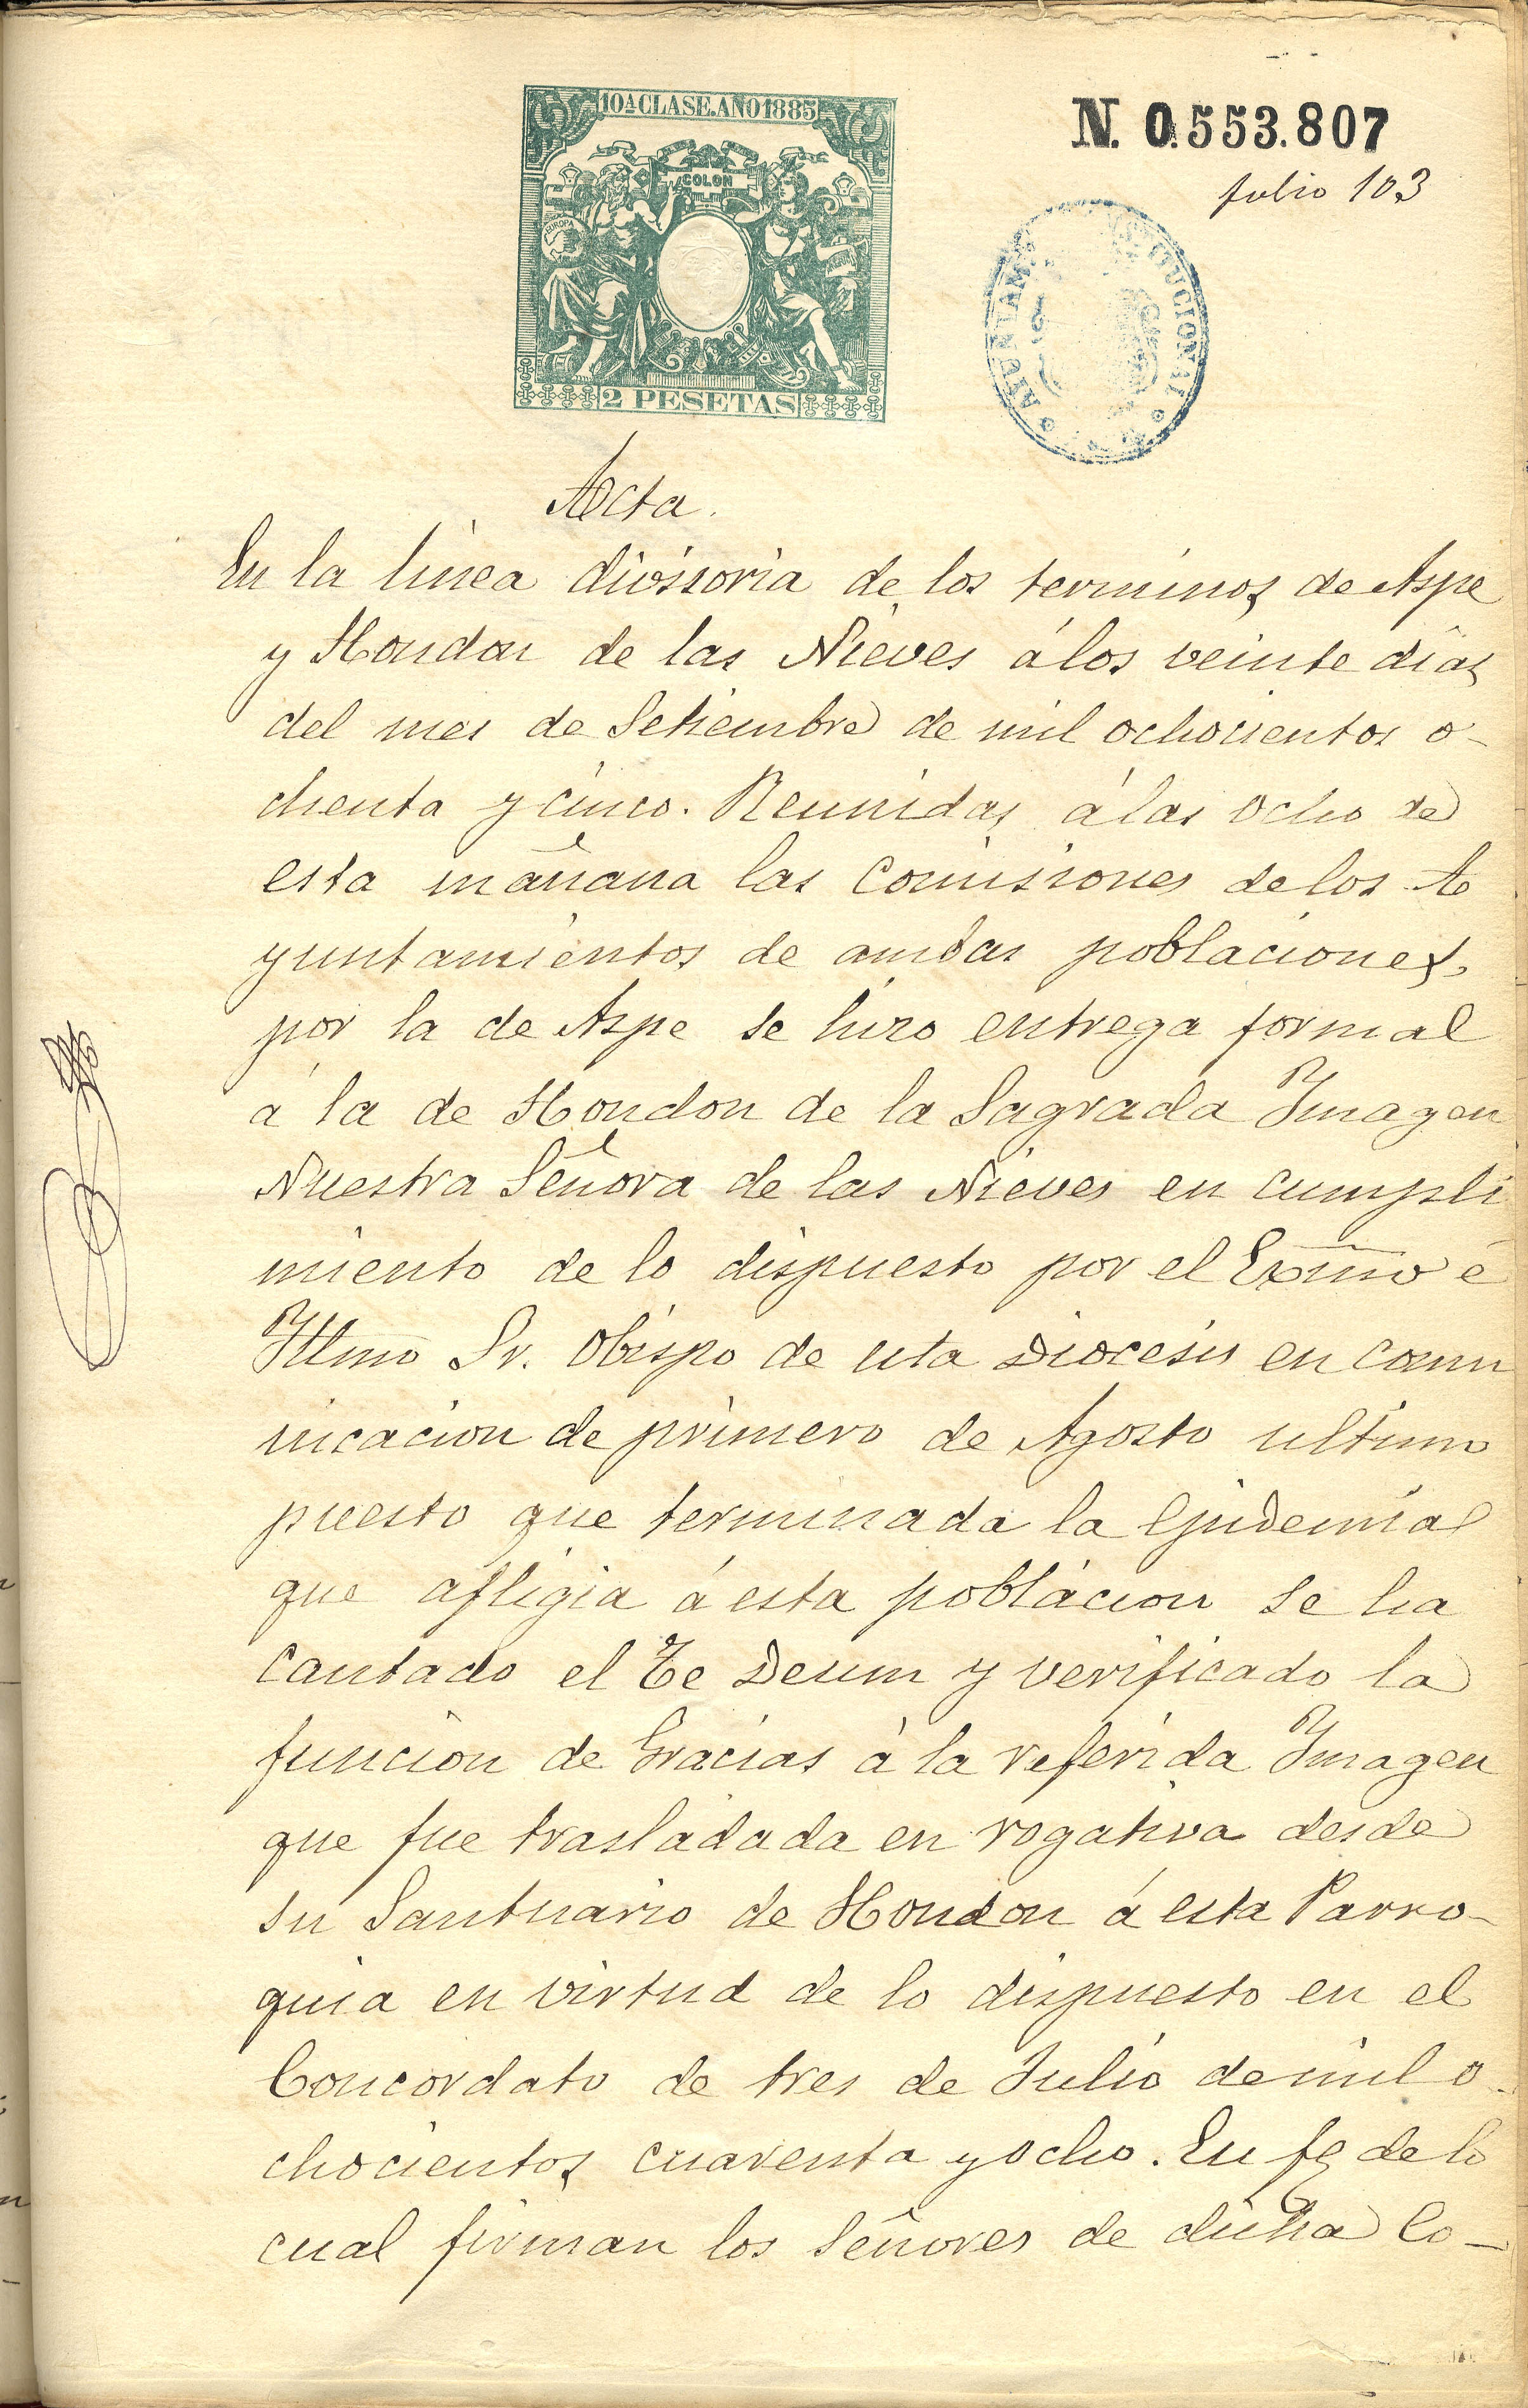 10ª CLASE. AÑO 1885
COLON
EUROPA
2 PESETAS
N. 0.553.807
folio 103
AYUNTAM
UCIONAL
Acta.
En la linea divisoria de los terminos de Aspe
y Hondon de las Nieves á los veinte dias
del mes de Setiembre de mil ochocientos o-
chenta y cinco. Reunidas á las ocho de
esta mañana las Comisiones de los A
yuntamientos de ambas poblaciones,
por la de Aspe se hizo entrega formal
á la de Hondon de la Sagrada Imagen
Nuestra Señora de las Nieves en cumpli
miento de lo dispuesto por el Exmo é
Illmo Sr. Obispo de esta Diocesis en comu
nicacion de primero de Agosto ultimo
puesto que terminada la Epidemia
que afligia á esta poblacion se ha
cantado el Te Deum y verificado la
funcion de Gracias á la referida Imagen
que fue trasladada en rogativa desde
su Santuario de Hondon á esta Parro-
quia en virtud de lo dispuesto en el
Concordato de tres de Julio de mil o-
chocientos cuarenta y ocho. En fe de lo
cual firman los Señores de dicha Co-